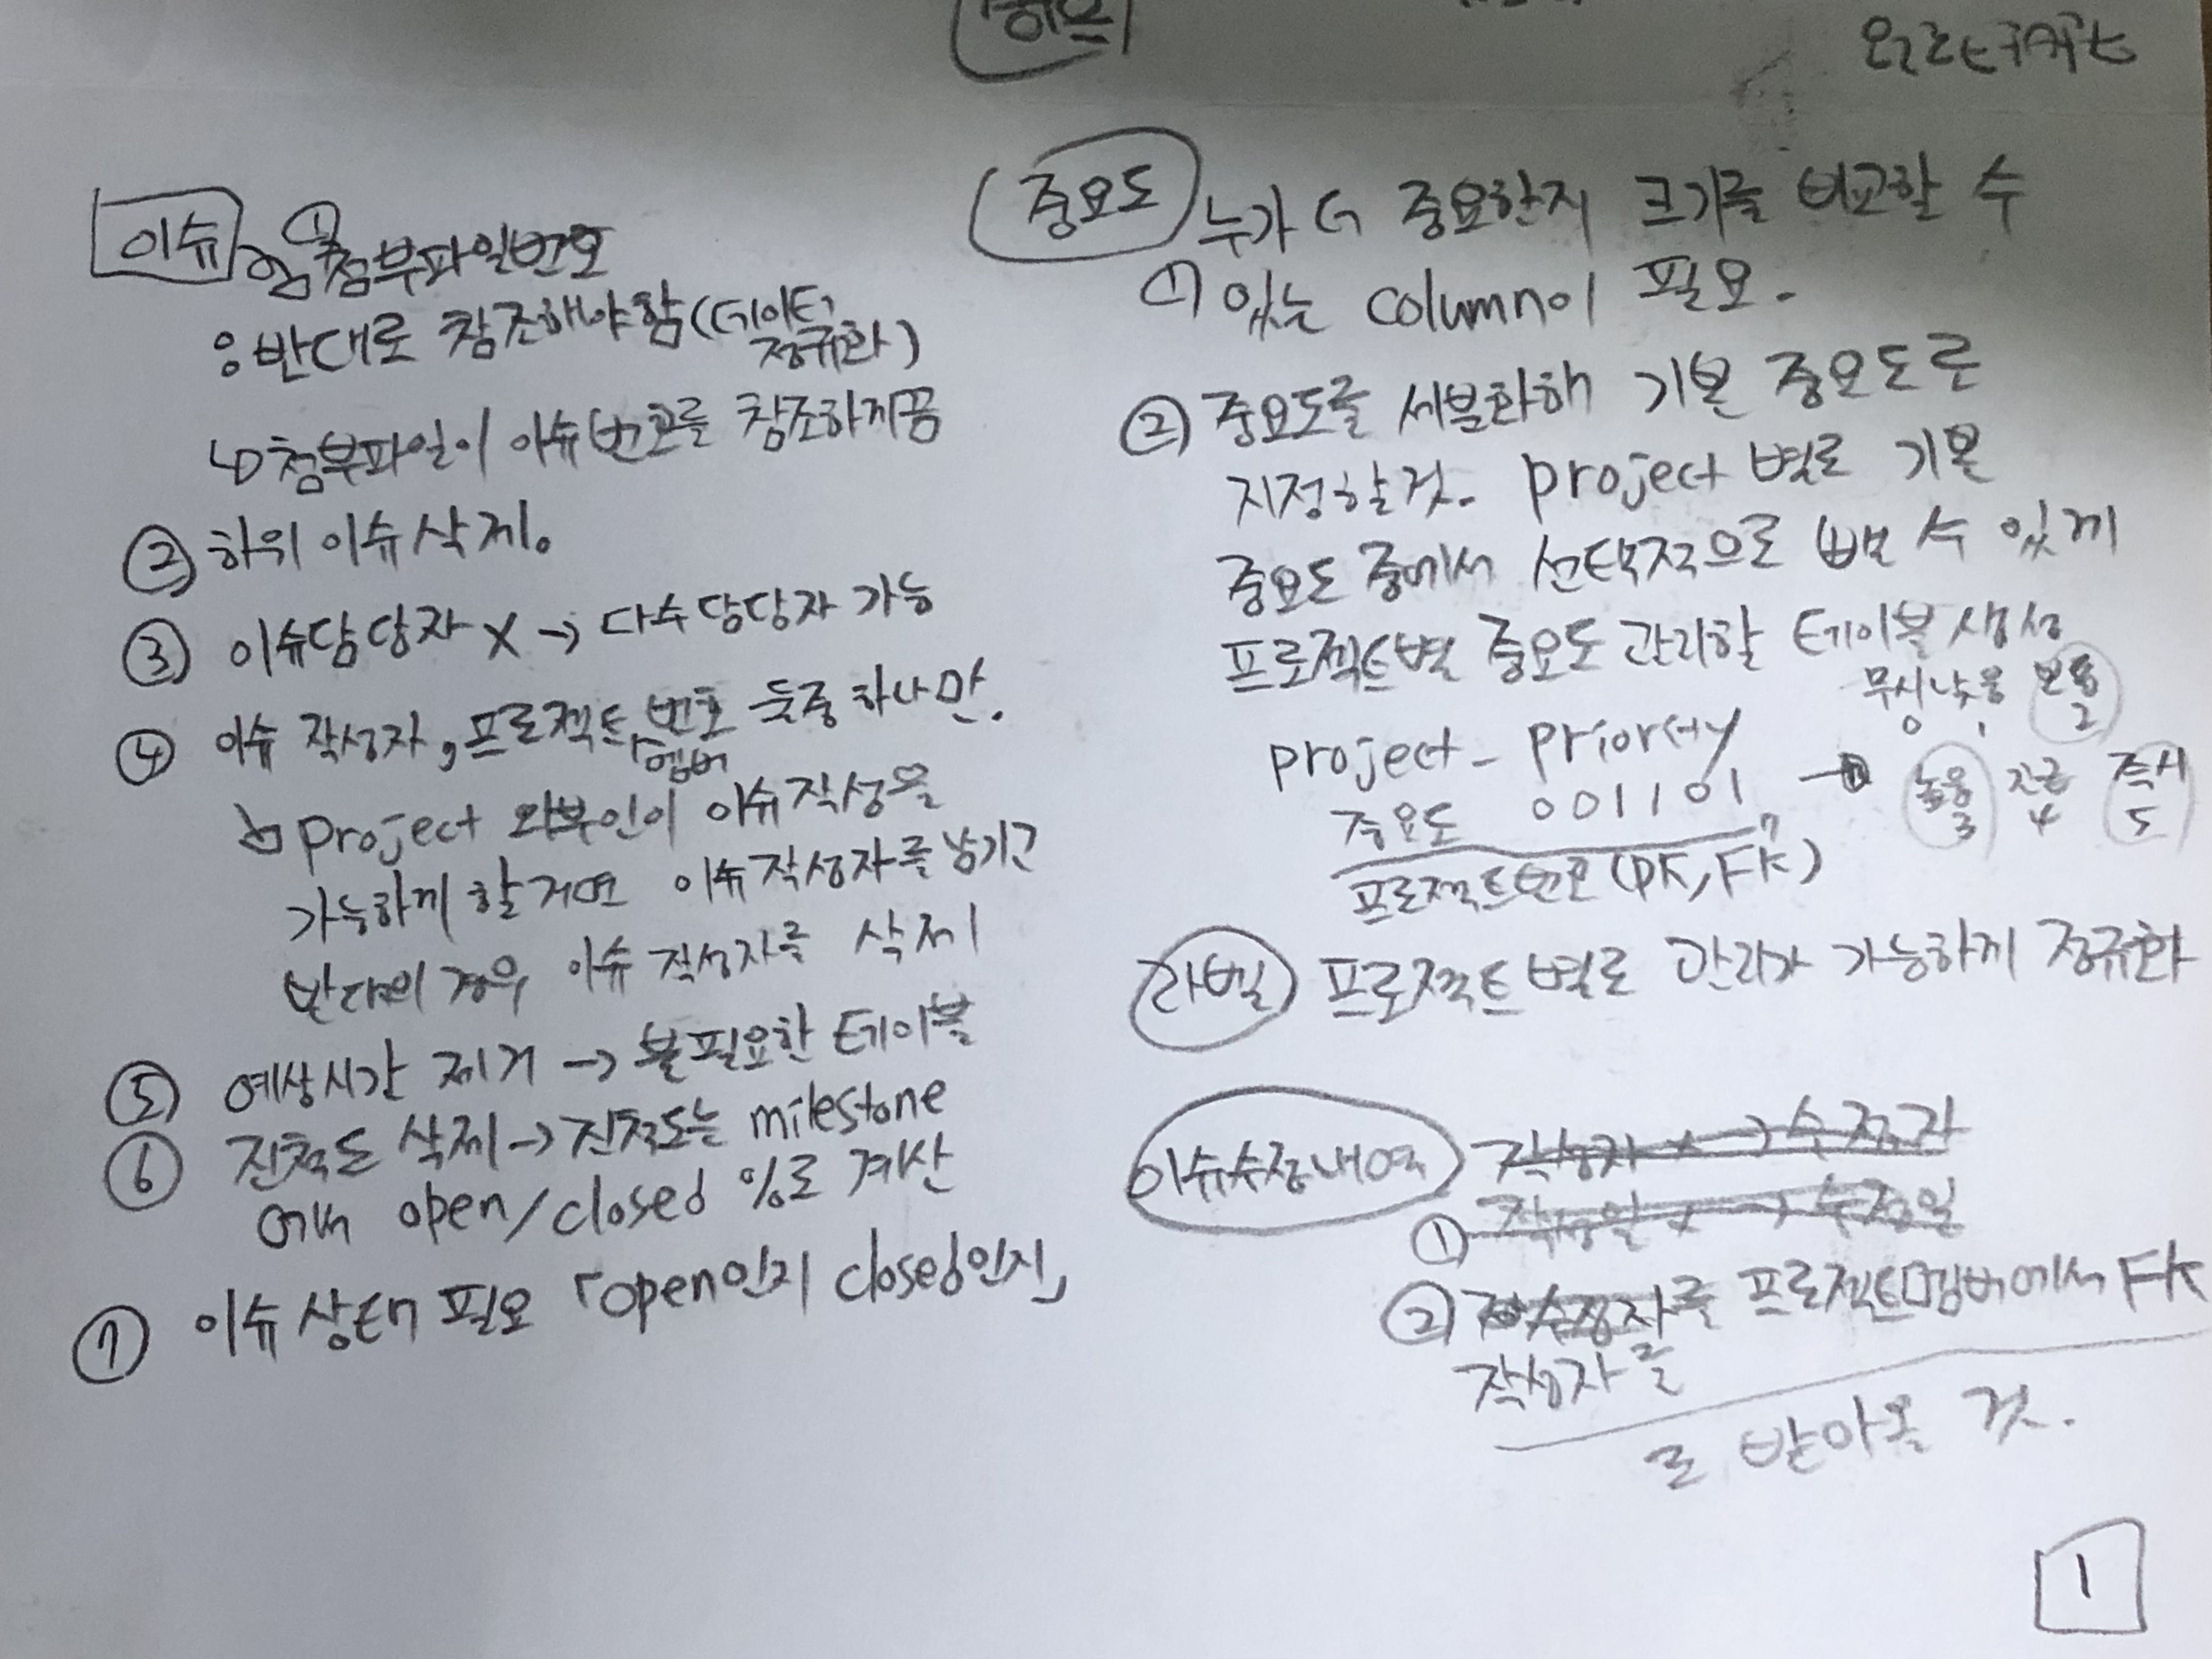 이슈
① 첨부파일번호
: 반대로 참조해야함(데이터
정규화)
↳ 첨부파일이 이슈번호를 참조하게끔
② 하위 이슈 삭제.
③ 이슈담당자 X → 다수담당자 가능
④ 이슈 작성자, 프로젝트 번호 둘중 하나만.
멤버
↳ project 외부인이 이슈작성을
가능하게 할거면 이슈작성자를 남기고
반대의 경우 이슈 작성자를 삭제
⑤ 예상시간 제거 → 불필요한 테이블
⑥ 진척도 삭제 → 진척도는 milestone
에서 open/closed %로 계산
⑦ 이슈상태 필요 「open인지 closed인지」
중요도
누가 더 중요한지 크기를 비교할 수
① 있는 column이 필요.
② 중요도를 세분화해 기본 중요도로
지정할것. project 별로 기본
중요도 중에서 선택적으로 뺄 수 있게
프로젝트별 중요도 관리할 테이블 생성
project_priority
중요도 001101 →
무시 낮음 보통
0 1 2
높음 긴급 즉시
3 4 5
프로젝트번호(PK, FK)
라벨 프로젝트별로 관리가 가능하게 정규화
이슈수정내역
작성자 x → 수정자
① 작성일 x → 수정일
② 수정자를 프로젝트멤버에서 FK
작성자를
로 받아올 것.
1